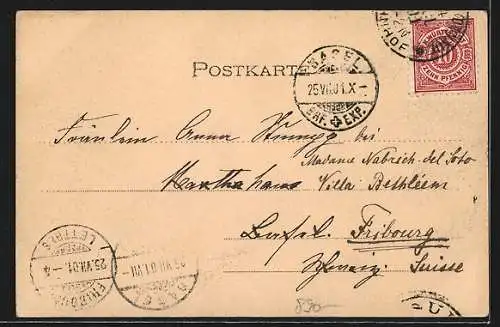 POSTKARTE
WÜRTTEMBERG
10
ZEHN PFENNIG
BASEL
25.VII.01.X-
BRF. EXP.
Fräulein Anna
bei
Madame Nabrich-del Soto
Marthahaus Villa Bethléem
Basel. Fribourg
Schweiz. Suisse
LETTRES
25.VII.01.-4
FRIBOURG
25.VII.01.VII-
BASEL
890